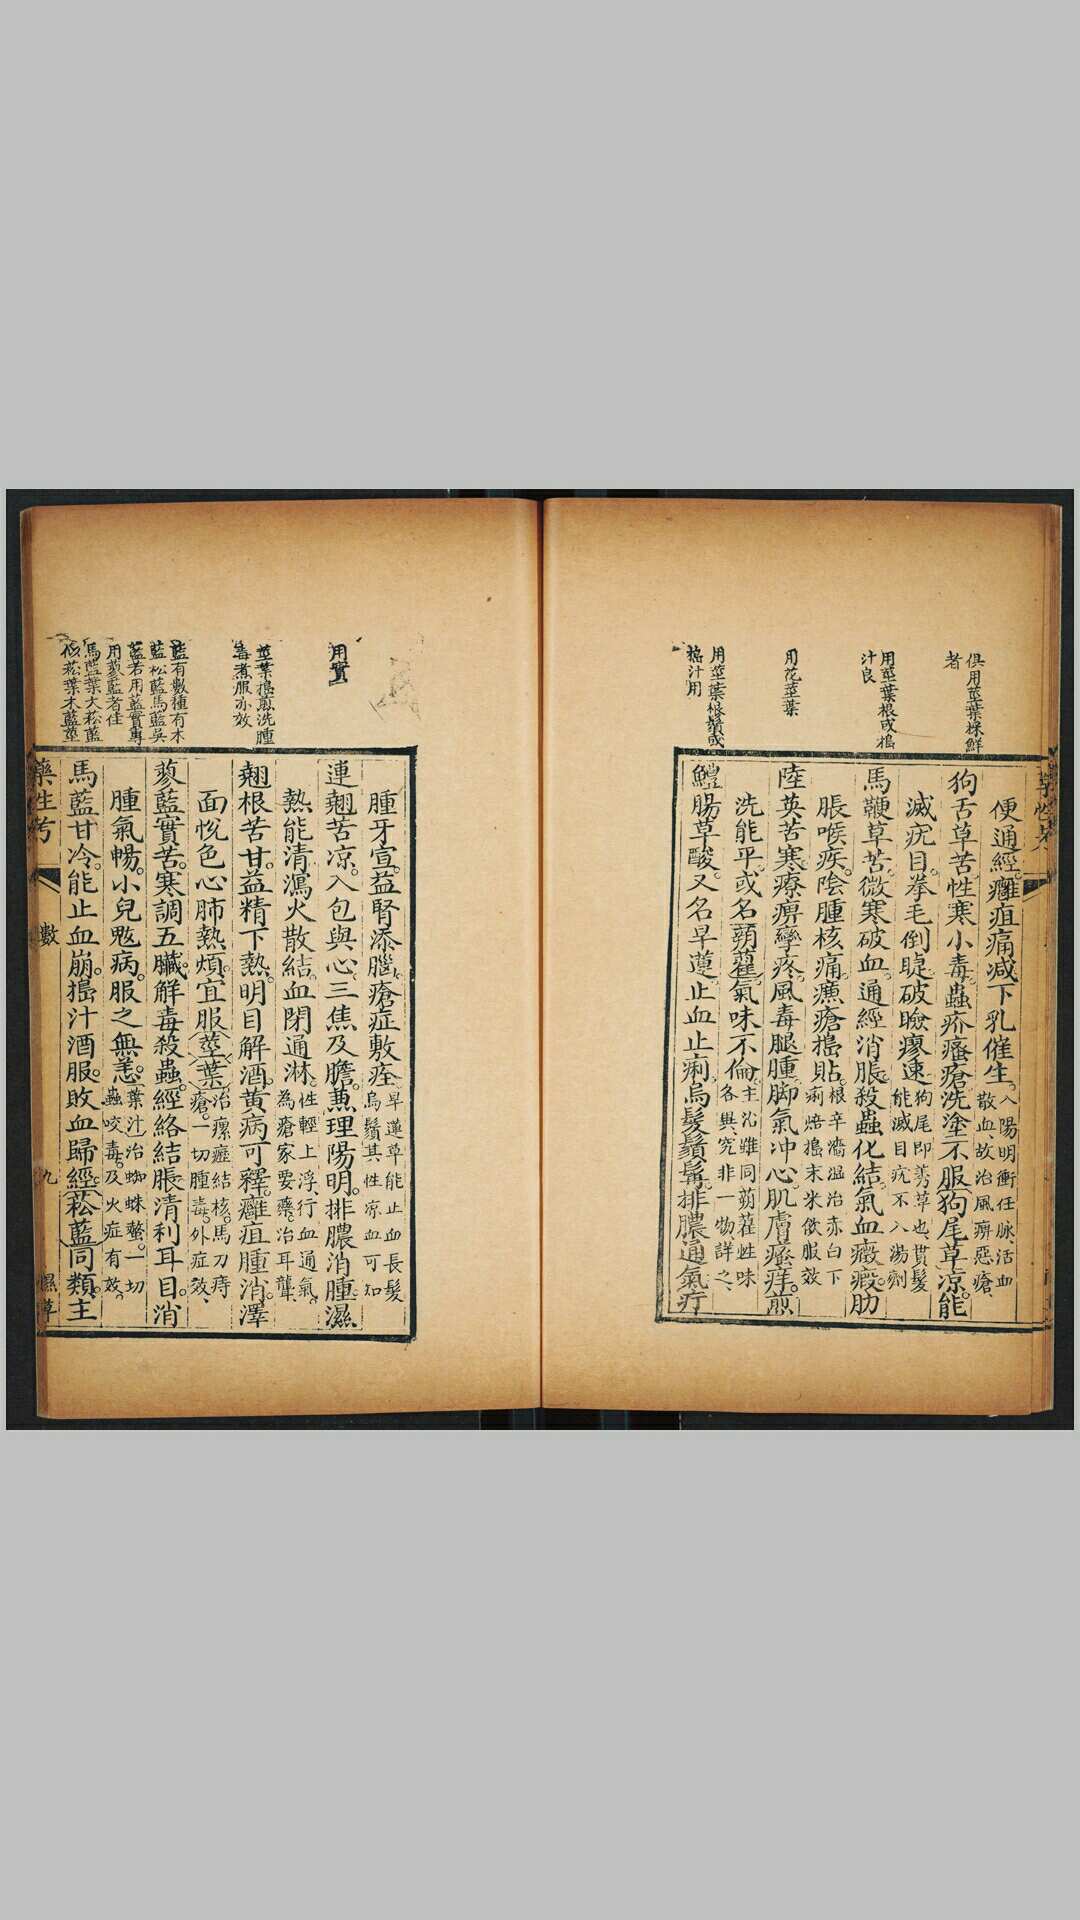 俱用莖葉採鮮
者
用莖葉根或搗
汁良
用花莖葉
用莖葉根鬚或
搗汁用
便通經。癰疽痛減下乳催生。入陽明衝任脉、活血
散血、故治風痹惡瘡、
狗舌草苦。性寒小毒。蟲疥瘙瘡洗塗不服。狗尾草涼。能
滅疣目。拳毛倒睫。破瞼瘳速。狗尾即莠草也、貫髮
能滅目疣不入湯劑
馬鞭草苦。微寒破血。通經消脹。殺蟲化結。氣血癥瘕。肋
脹喉疾。陰腫核痛。瘭瘡搗貼。根辛濇溫治赤白下
痢焙搗末米飲服效
陸英苦寒。療痹攣疼。風毒腿腫。脚氣冲心。肌膚瘙痒。煎
洗能平。或名蒴藋。氣味不倫。主沁雖同蒴藋性味
各異、究非一物詳之、
鱧腸草酸。又名旱蓮。止血止痢。烏髮鬚髯。排膿通氣。疔
用實
莖葉搗煎洗腫
毒煮服亦效
藍有數種有木
藍松藍馬藍吳
藍若用藍實專
用蓼藍者佳
馬藍葉大菘藍
葉木藍莖
腫牙宣。益腎添腦。瘡症敷痊。旱蓮草能止血長髮
烏鬚其性涼血可知
連翹苦涼。入包與心。三焦及膽。兼理陽明。排膿消腫。濕
熱能清。瀉火散結。血閉通淋。性輕上浮、行血通氣。
為瘡家要藥。治耳聾、
翹根苦甘。益精下熱。明目解酒。黃病可釋。癰疽腫消。澤
面悅色。心肺熱煩。宜服莖葉。治瘰癧結核。馬刀痔
瘡。一切腫毒。外症效、
蓼藍實苦。寒調五臟。解毒殺蟲。經絡結脹。清利耳目。消
腫氣暢。小兒魃病。服之無恙。葉汁治蜘蛛螫。一切
蟲咬毒。及火症有效。
馬藍甘冷。能止血崩。搗汁酒服。敗血歸經。菘藍同類。主
藥性考
九
隰草